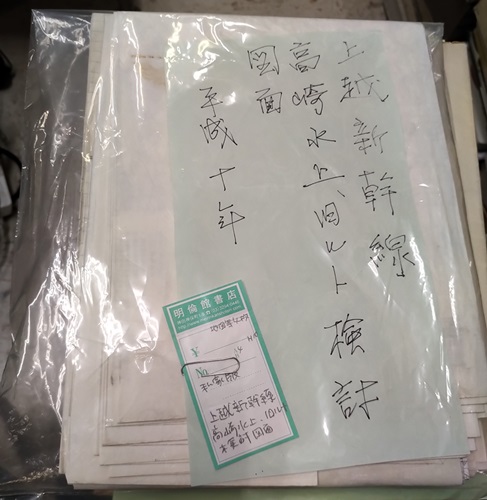 上越新幹線
高崎水上、旧ルト検討
図面
平成十年
明倫館書店
私家版
上越新幹線
高崎水上、旧ル
ト検討図面